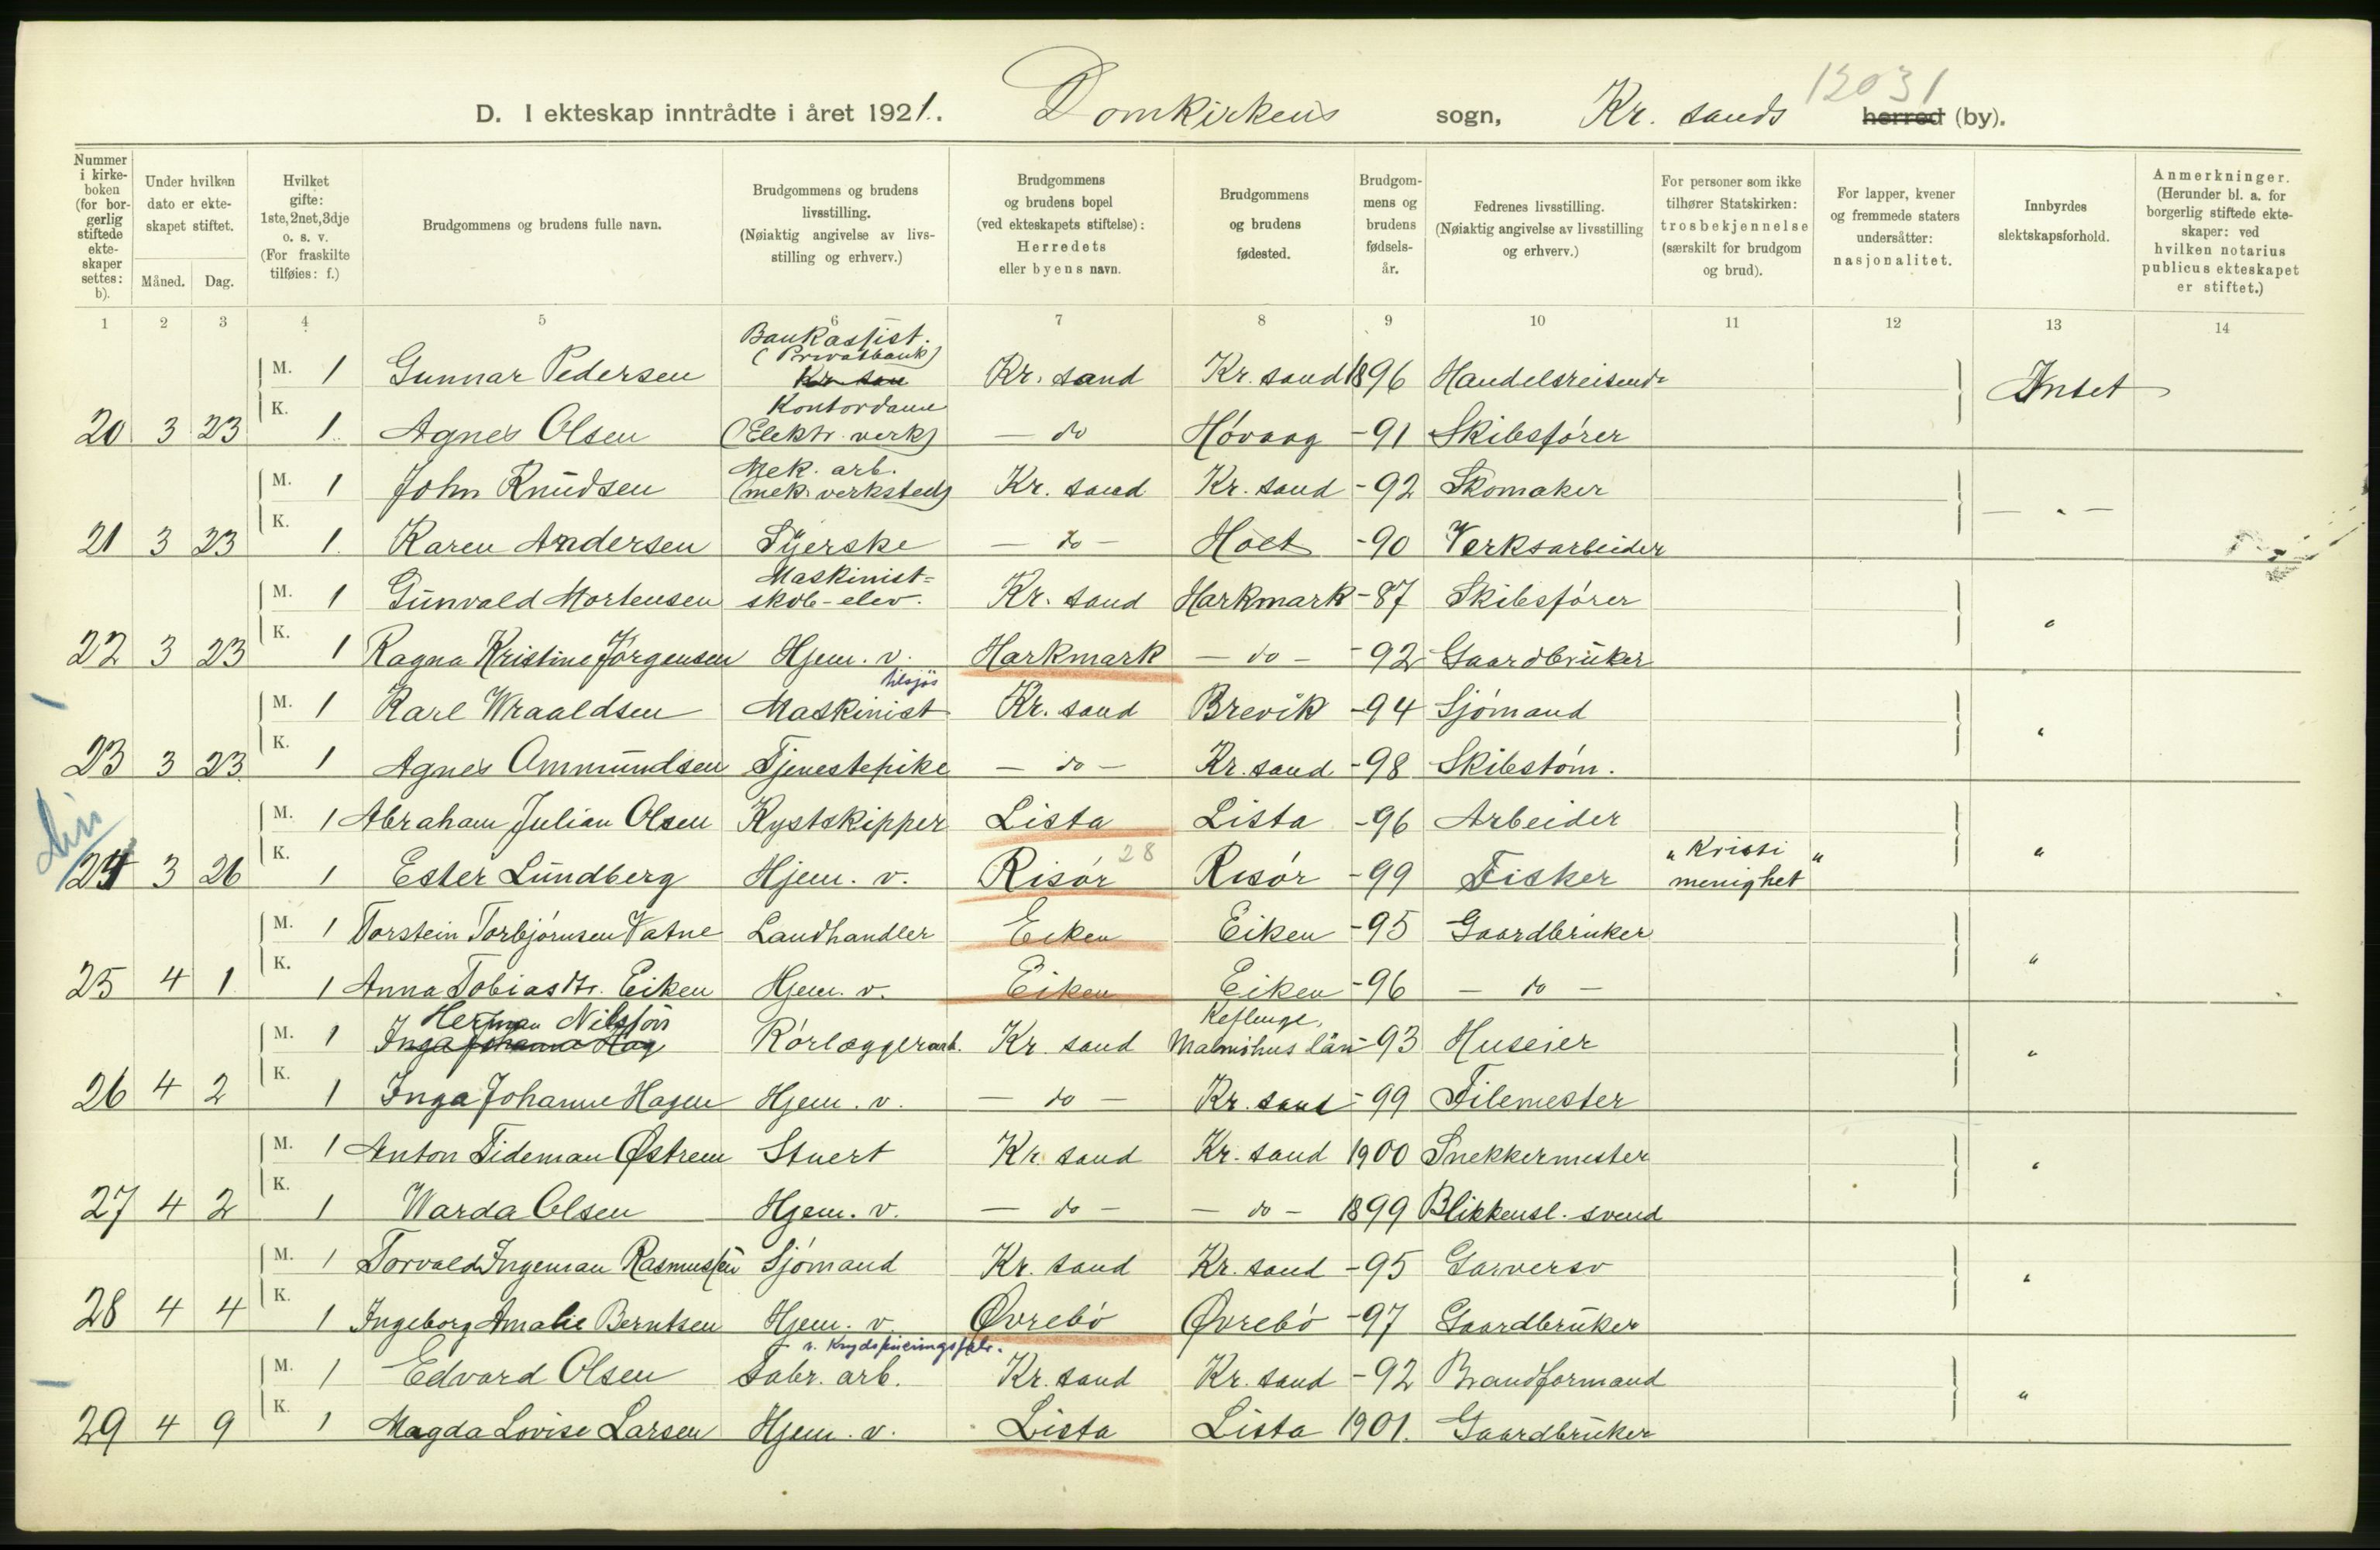 12031
D. I ekteskap inntrådte i året 1921. Domkirkens sogn, Kr. sands herred (by).
Nummer i kirkeboken (for borgerlig stiftede ekteskaper settes: b).
Under hvilken dato er ekteskapet stiftet.
Måned. Dag.
Hvilket gifte: 1ste, 2net, 3dje o. s. v. (For fraskilte tilføies: f.)
Brudgommens og brudens fulle navn.
Brudgommens og brudens livsstilling. (Nøiaktig angivelse av livsstilling og erhverv.)
Brudgommens og brudens bopel (ved ekteskapets stiftelse): Herredets eller byens navn.
Brudgommens og brudens fødested.
Brudgommens og brudens fødselsår.
Fedrenes livsstilling. (Nøiaktig angivelse av livsstilling og erhverv.)
For personer som ikke tilhører Statskirken: trosbekjennelse (særskilt for brudgom og brud).
For lapper, kvener og fremmede staters undersåtter: nasjonalitet.
Innbyrdes slektskapsforhold.
Anmerkninger. (Herunder bl. a. for borgerlig stiftede ekteskaper: ved hvilken notarius publicus ekteskapet er stiftet.)
1 2 3 4 5 6 7 8 9 10 11 12 13 14
Bankassist.
(Privatbank)
M. 1 Gunnar Pedersen Kr. san Kr. sand Kr. sand 1896 Handelsreisende Intet
Kontordame
20 3 23 K. 1 Agnes Olsen (Elektr. verk) — do Hóvaag -91 Skibsfórer
Mek. arb.
M. 1 John Knudsen (mek. verksted) Kr. sand Kr. sand -92 Skomaker — " —
21 3 23 K. 1. Karen Andersen Syerske — do — Holt -90 Verksarbeider
Maskinist-
M. 1 Gunvald Mortensen skole-elev. Kr. sand Harkmark -87 Skibsfórer "
22 3 23 K. 1 Ragna Kristine Jórgensen Hjem. v. Harkmark — do — -92 Gaardbruker
tilsjös
M. 1 Karl Wraaldsen Maskinist Kr. sand Brevik -94 Sjómand "
23 3 23 K. 1 Agnes Ommundsen Tjenestepike — do — Kr. sand -98 Skibstóm.
M. 1 Abraham Julian Olsen Kystskipper Lista Lista -96 Arbeider "
28
24 3 26 K. 1 Ester Lundberg Hjem. v. Risór Risór -99 Fisker "Kristi menighet"
M. 1 Torstein Torbjórnsen Vatne Landhandler Eiken Eiken -95 Gaardbruker "
25 4 1 K. 1 Anna Tobiasdtr. Eiken Hjem. v. Eiken Eiken -96 — do —
Herman Nilsson Keflinge,
M. 1 Inga Johanna Hag Rórlæggerarb. Kr. sand Malmöhus län -93 Huseier "
26 4 2 K. 1 Inga Johanne Hagen Hjem. v. — do — Kr. sand -99 Filemester
M. 1 Anton Tideman Østrem Stuert Kr. sand Kr. sand 1900 Snekkermester "
27 4 2 K. 1 Warda Olsen Hjem. v. — do — — do — 1899 Blikkensl. svend
M. 1 Torvald Ingeman Rasmussen Sjómand Kr. sand Kr. sand -95 Garversv "
28 4 4 K. 1 Ingeborg Amalie Berntsen Hjem. v. Øvrebó Øvrebó -97 Gaardbruker
M. 1 Edvard Olsen fabr. arb. Kr. sand Kr. sand -92 Brandformand "
29 4 9 K. 1 Magda Lovise Larsen Hjem. v. Lista Lista 1901. Gaardbruker